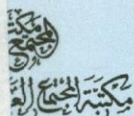 مكتبة
المجتمع
مكتبة المجتمع